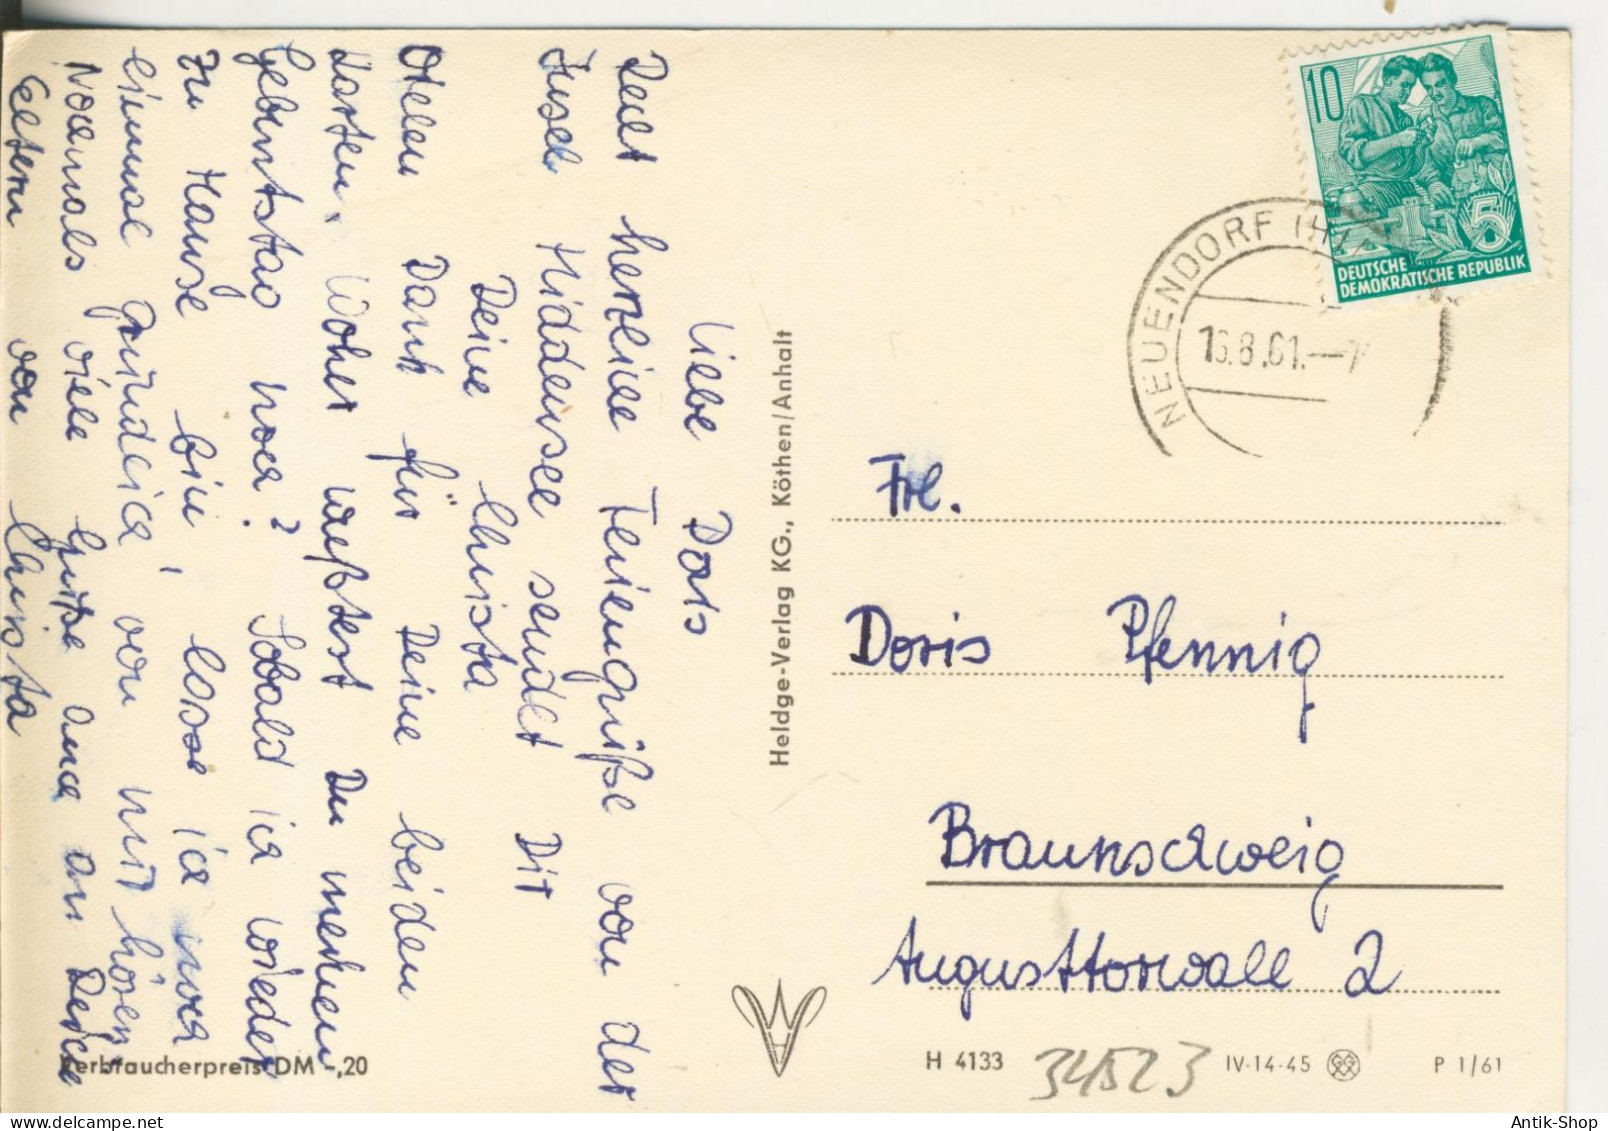 Liebe Doris
Recht herzliche Feriengrüße von der
Insel Hiddensee sendet Dir
Deine Christa
Vielen Dank für Deine beiden
Karten. Woher wußtest Du meinen
Geburtstag noch? Sobald ich wieder
zu Hause bin, lasse ich noch
einmal gründlich von mir hören
Nochmals viele Grüße auch an Deine
Eltern von Christa
Verbraucherpreis DM -,20
Heldge-Verlag KG., Köthen/Anhalt
10
5
DEUTSCHE
DEMOKRATISCHE REPUBLIK
NEUENDORF (HI
16.8.61.-7
Frl.
Doris Pfennig
Braunschweig
Augusttorwall 2
H 4133
34523
IV-14-45
P 1/61
Antik-Shop